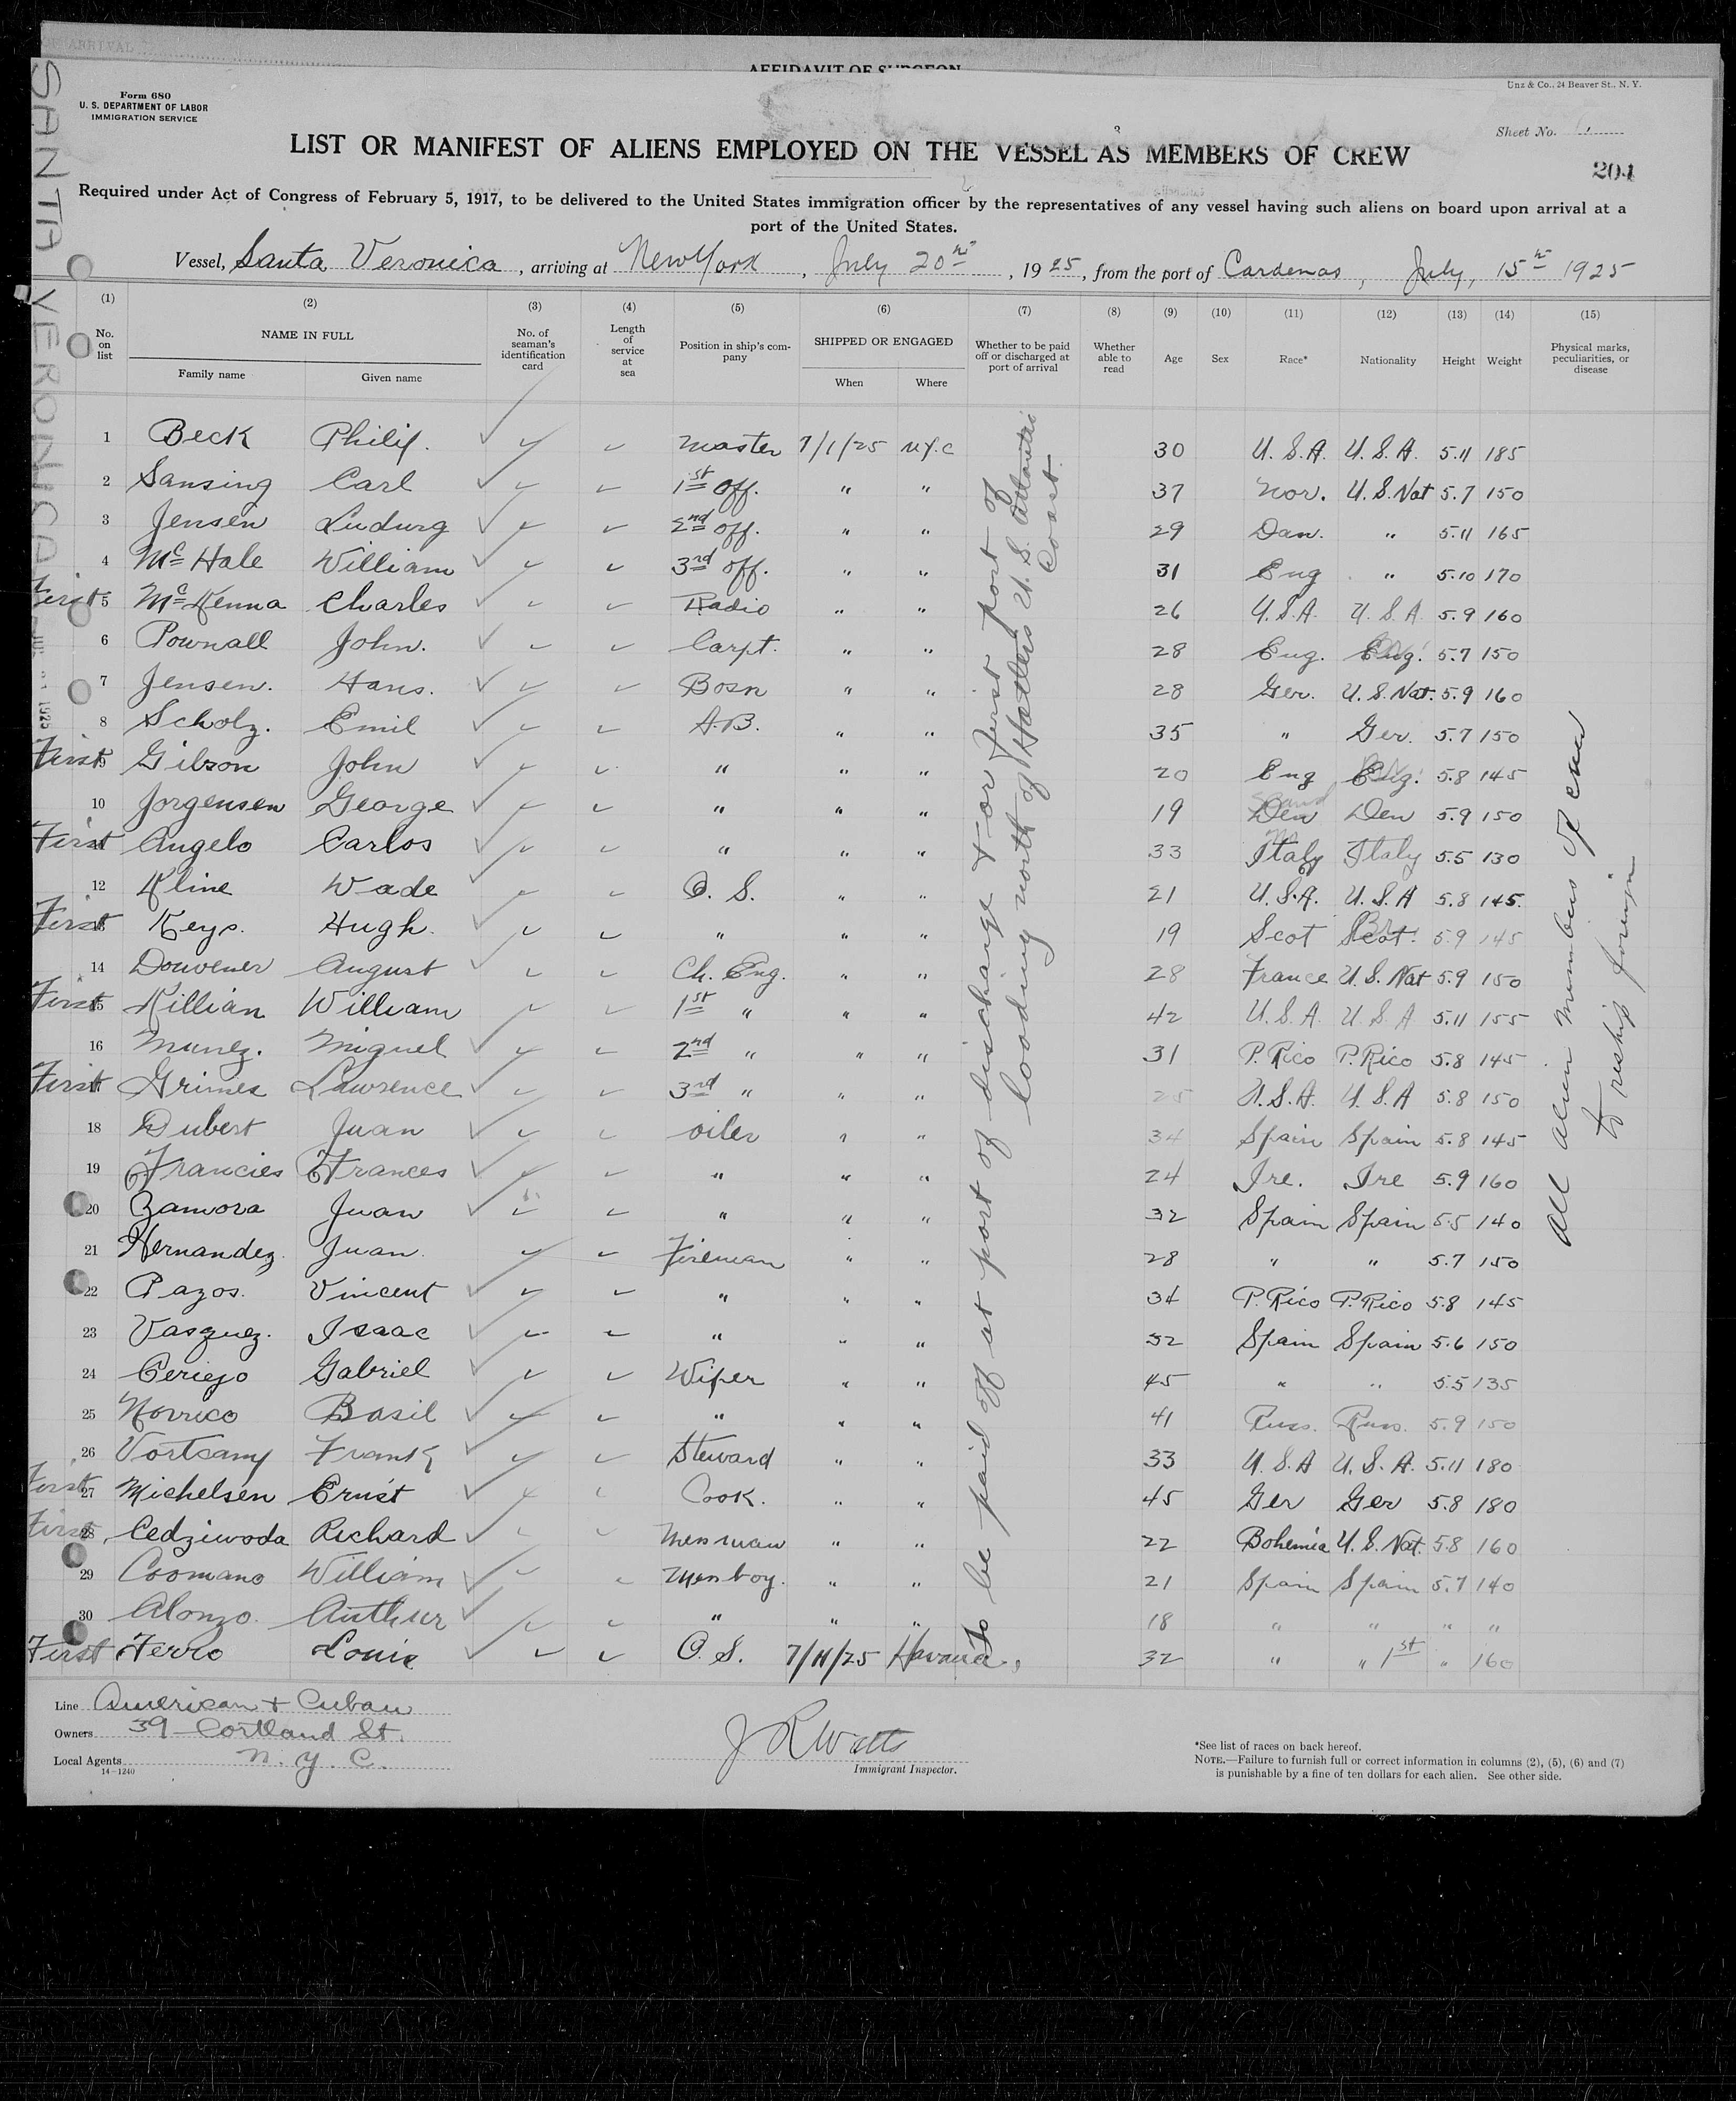 ARRIVAL
AFFIDAVIT OF SURGEON
Form 680
U. S. DEPARTMENT OF LABOR
IMMIGRATION SERVICE
Unz & Co., 24 Beaver St., N. Y.
Sheet No. 1
LIST OR MANIFEST OF ALIENS EMPLOYED ON THE VESSEL AS MEMBERS OF CREW
204
Required under Act of Congress of February 5, 1917, to be delivered to the United States immigration officer by the representatives of any vessel having such aliens on board upon arrival at a
port of the United States.
Vessel, Santa Veronica, arriving at New York, July 20th, 1925, from the port of Cardenas, July, 15th 1925
SANTA VERONICA
(1) (2) (3) (4) (5) (6) (7) (8) (9) (10) (11) (12) (13) (14) (15)
No. on list NAME IN FULL Family name Given name No. of seaman's identification card Length of service at sea Position in ship's company SHIPPED OR ENGAGED When Where Whether to be paid off or discharged at port of arrival Whether able to read Age Sex Race* Nationality Height Weight Physical marks, peculiarities, or disease
1 Beck Philip. ✓ ✓ ✓ Master 7/1/25 N.Y.C 30 U.S.A. U.S.A. 5.11 185
2 Sansing Carl ✓ ✓ ✓ 1st Off. " " 37 Nor. U.S. Nat 5.7 150
3 Jensen Ludwig ✓ ✓ ✓ 2nd Off. " " 29 Dan. " 5.11 165
4 McHale William ✓ ✓ ✓ 3rd Off. " " 31 Eng " 5.10 170
First 5 McKenna Charles ✓ ✓ ✓ Radio " " 26 U.S.A. U.S.A. 5.9 160
6 Pownall John. ✓ ✓ ✓ Carpt. " " 28 Eng. Eng. 5.7 150
7 Jensen. Hans. ✓ ✓ ✓ Bosn " " 28 Ger. U.S. Nat. 5.9 160
8 Scholz. Emil ✓ ✓ ✓ A.B. " " 35 " Ger. 5.7 150
First 9 Gibson John ✓ ✓ ✓ " " " 20 Eng Eng. 5.8 145
10 Jorgensen George ✓ ✓ ✓ " " " 19 Den Den 5.9 150
First Angelo Carlos ✓ ✓ ✓ " " " 33 Italy Italy 5.5 130
12 Kline Wade ✓ ✓ ✓ O.S. " " 21 U.S.A. U.S.A 5.8 145.
First Keys. Hugh. ✓ ✓ ✓ " " " 19 Scot Scot. 5.9 145
14 Douvener August ✓ ✓ ✓ Ch. Eng. " " 28 France U.S. Nat 5.9 150
First 15 Killian William ✓ ✓ 1st " " " 42 U.S.A. U.S.A 5.11 155
16 Munez. Miguel ✓ ✓ ✓ 2nd " " " 31 P.Rico P.Rico 5.8 145
First Grimes Lawrence ✓ ✓ ✓ 3rd " " " 25 U.S.A. U.S.A 5.8 150
18 Dubert Juan ✓ ✓ ✓ oiler " " 34 Spain Spain 5.8 145
19 Francies Frances ✓ ✓ ✓ " " " 24 Ire. Ire 5.9 160
20 Zamora Juan ✓ ✓ ✓ " " " 32 Spain Spain 5.5 140
21 Hernandez. Juan. ✓ ✓ Fireman " " 28 " " 5.7 150
22 Pazos. Vincent ✓ ✓ ✓ " " " 34 P.Rico P.Rico 5.8 145
23 Vasquez. Isaac ✓ ✓ ✓ " " " 32 Spain Spain 5.6 150
24 Ceriejo Gabriel ✓ ✓ ✓ Wiper " " 45 " " 5.5 135
25 Basil ✓ ✓ ✓ " " " 41 Russ. Russ. 5.9 150
26 Vortcamp Frank ✓ ✓ ✓ Steward " " 33 U.S.A U.S.A. 5.11 180
First 27 Michelsen Ernst ✓ ✓ ✓ Cook. " " 45 Ger Ger 5.8 180
First 28 Cedziwoda Richard ✓ ✓ ✓ Messman " " 22 Bohemia U.S. Nat. 5.8 160
29 Coomano William ✓ ✓ ✓ Messboy. " " 21 Spain Spain 5.7 140
30 Alonzo. Authur ✓ ✓ ✓ " " " 18 " " " "
First Ferro Louis ✓ ✓ ✓ O.S. 7/11/25 Havana. 32 " " 1st " 160
To be paid off at port of discharge + or first port of
loading north of Hatteras U.S. Atlantic
Coast.
All alien members of crew
to reship foreign
Line American + Cuban
Owners 39 Cortland St.
Local Agents N.Y.C.
14—1240
J R Watts
Immigrant Inspector.
*See list of races on back hereof.
NOTE.—Failure to furnish full or correct information in columns (2), (5), (6) and (7)
is punishable by a fine of ten dollars for each alien. See other side.